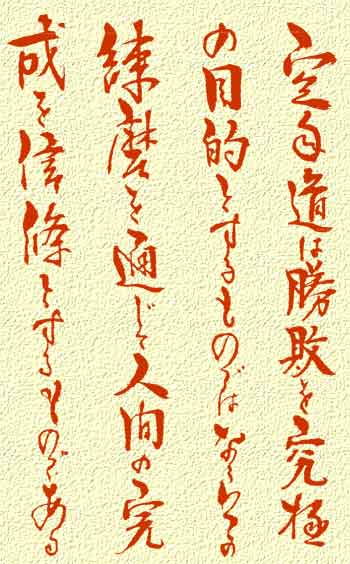 空手道は勝敗を究極
の目的とするものではなくその
練磨を通じて人間の完
成を信條とするものである